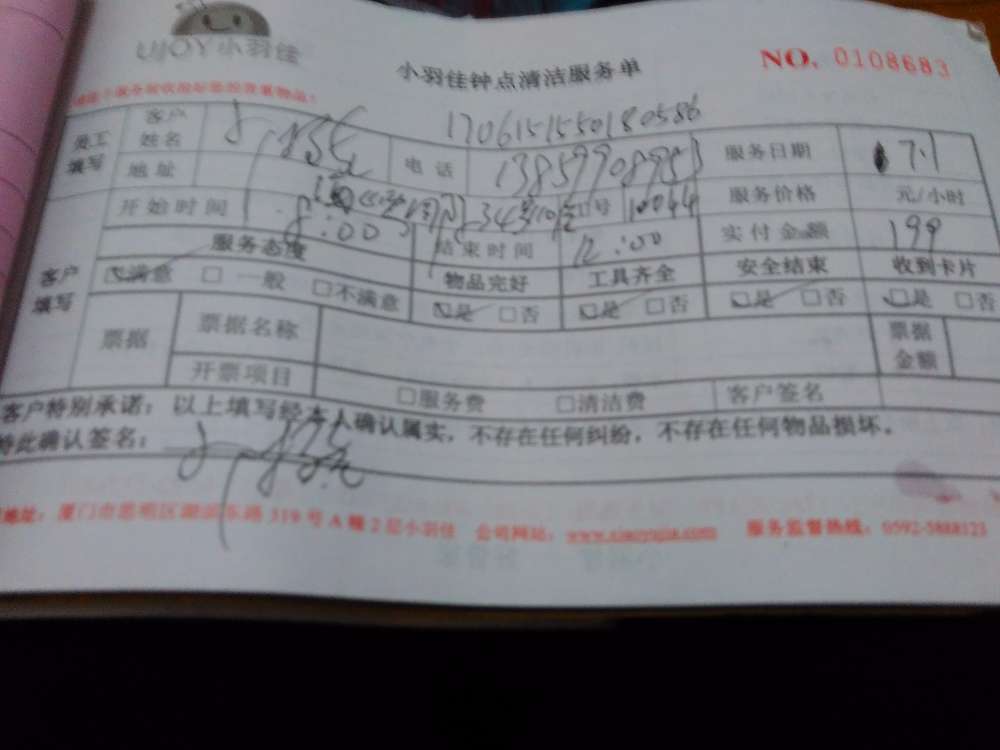 UJOY 小羽佳
小羽佳钟点清洁服务单
NO. 0108683
1706151550180586
员工填写 客户姓名 电话 13859908953 服务日期 7.1
地址 服务价格 元/小时
客户填写 开始时间 8:00 结束时间 12:00 实付金额 199
服务态度 物品完好 工具齐全 安全结束 收到卡片
☑满意 □一般 □不满意 ☑是 □否 ☑是 □否 ☑是 □否 ☑是 □否
票据 票据名称 票据金额
开票项目 □服务费 □清洁费 客户签名
客户特别承诺：以上填写经本人确认属实，不存在任何纠纷，不存在任何物品损坏。
特此确认签名：
地址：厦门市思明区湖滨东路319号A幢2层小羽佳 公司网站： 服务监督热线：0592-5888123